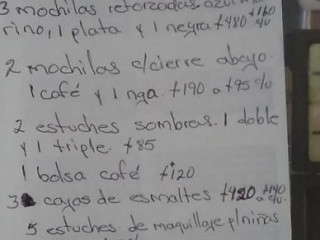 3 mochilas retorzadas azul ma
rino, 1 plata y 1 negra +480 +160 c/u
2 mochilas c/cierre abajo.
1 café y 1 nga. +190 o +95 c/u
2 estuches sombras. 1 doble
y 1 triple. +85
1 bolsa café +120
3 cajas de esmaltes +420 o +140 c/u.
5 estuches de maquillaje p/niñas